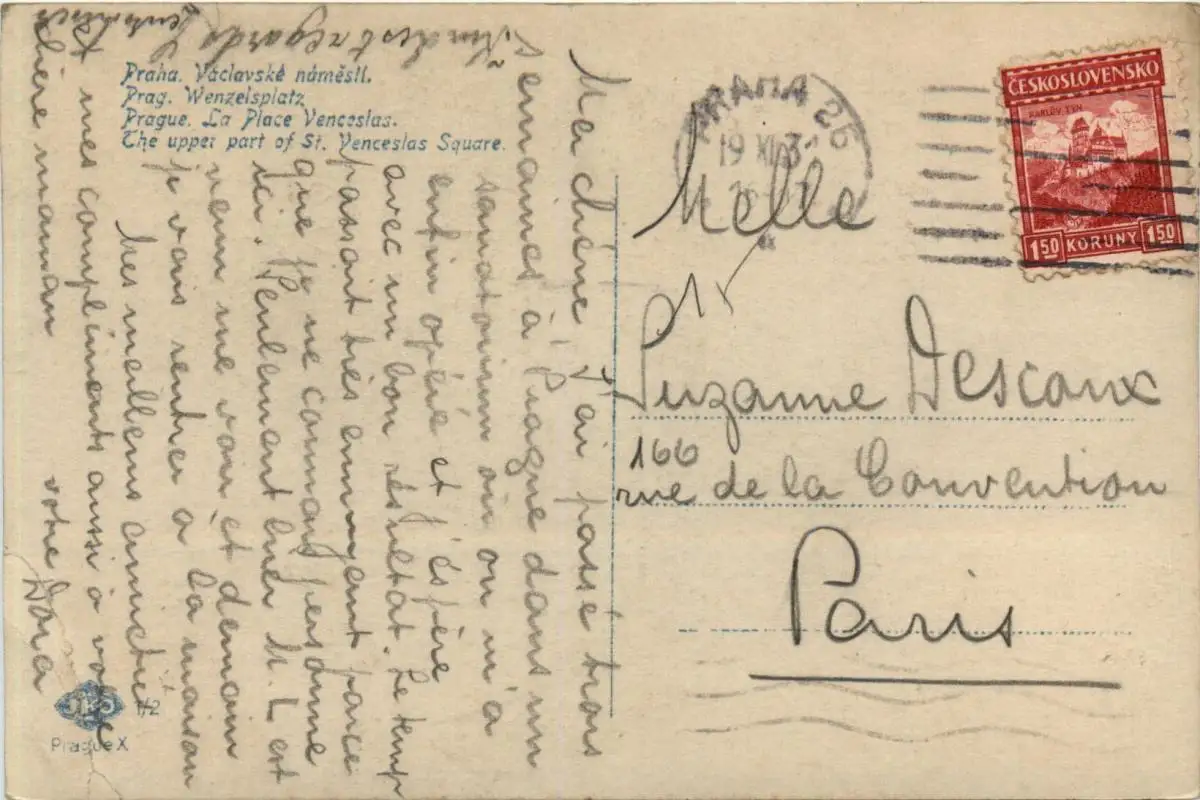 Praha. Václavské náměstí.
Prag. Wenzelsplatz
Prague. La Place Venceslas.
The upper part of St. Venceslas Square.
Ma chére, J'ai passé trois
semaines à Prague dans un
sanatorium où on m'a
enfin opéré et j'éspère
avec un bon résultat. Le temp
passait très ennuyant parce
que je ne connais personne
ici. Seulement hier M. L est
venu me voir et demain
je vais rentrer a la maison
Mes meilleurs amitiés
et mes compliments aussi à votre
chère maman
votre Dora
Kindest regards
PRAHA 25
19 XI 3
ČESKOSLOVENSKO
KARLŮV TÝN
1.50 KORUNY 1.50
Melle
Suzanne Descaux
166
rue de la Convention
Paris
1/2
Prague X